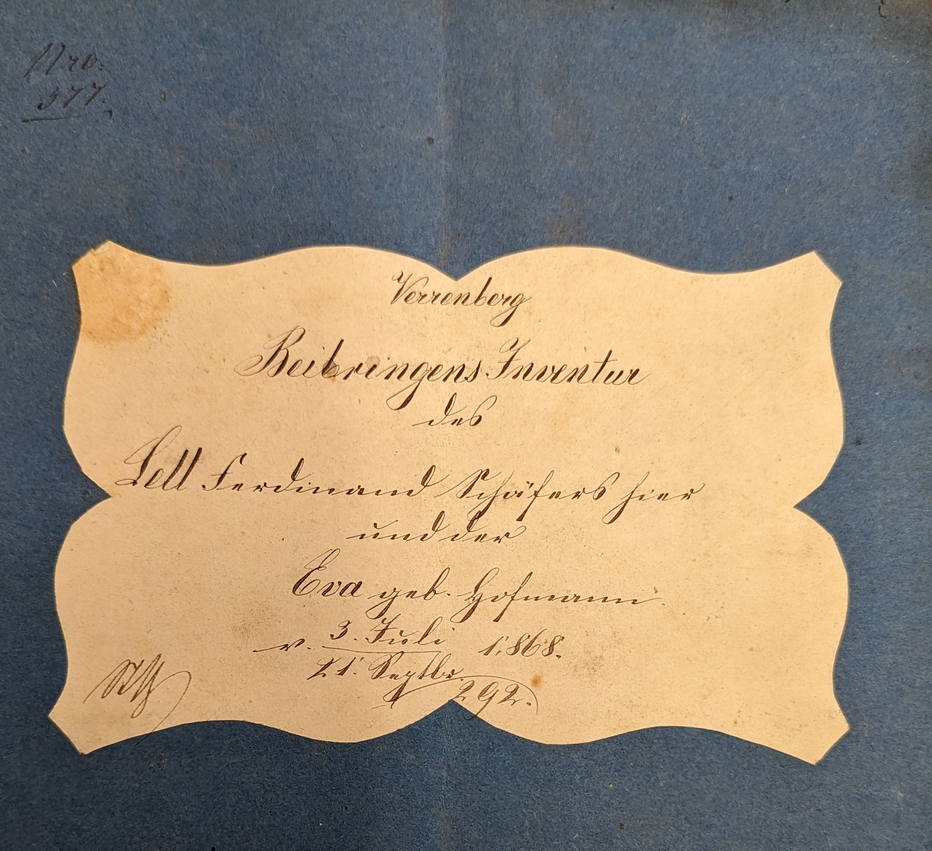 Nro.
377.
Verrenberg
Beibringens Inventur
des
Lell Ferdinand Schäfers hier
und der
Eva geb. Hofmann.
v. 3. Juli 1868.
21. Septbr.
292.